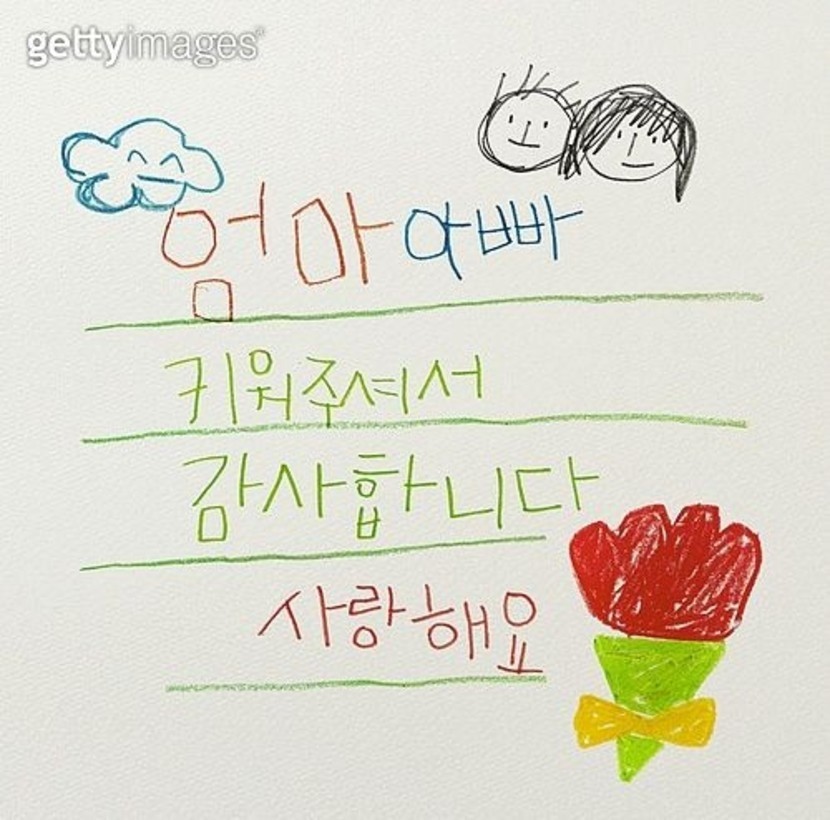 gettyimages®
엄마 아빠
키워주셔서
감사합니다
사랑해요